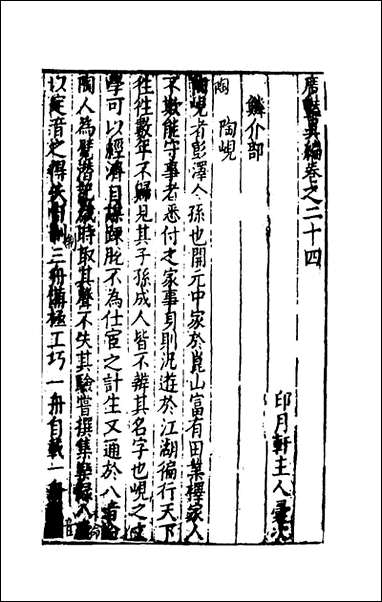 廣豔異編卷之二十四
印月軒主人彙次
鱗介部
陶峴
陶峴者彭澤之孫也開元中家於崑山富有田業擇家人
不欺能守事者悉付之家事身則汎遊於江湖徧行天下
往往數年不歸見其子孫成人皆不辨其名字也峴之文
學可以經濟自謂疎脫不為仕宦之計生又通於八音
陶人為甓潛記歲時取其聲不失其驗嘗撰集樂錄八音
以定音之得失自制三舟備極工巧一舟自載一舟